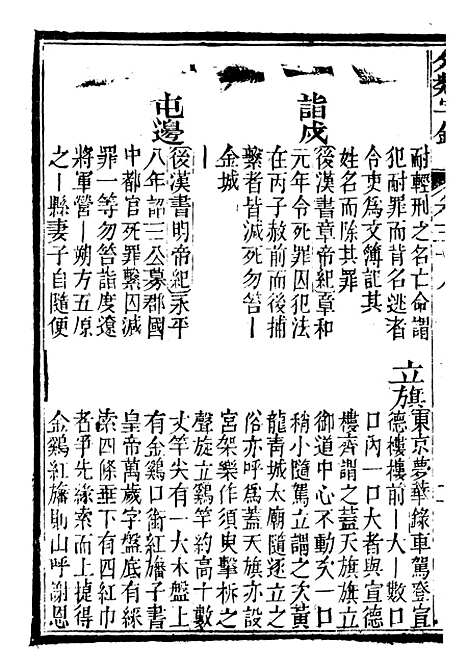 分類字錦
耐輕刑之名亡命謂
犯耐罪而背名逃者
令吏爲文簿記其
姓名而除其罪
詣戍 後漢書章帝紀章和
元年令死罪囚犯法
在丙子赦前而後捕
繫者皆減死勿笞丨
金城
丨
屯邊 後漢書明帝紀永平
八年詔三公募郡國
中都官死罪繫囚減
罪一等勿笞詣度遼
將軍營丨朔方五原
之丨縣妻子自隨便
立旗 東京夢華錄車駕登宣
德樓樓前丨大丨數口
口內一口大者與宣德
樓齊謂之蓋天旗旗立
御道中心不動次一口
稍小隨駕立謂之次黃
龍青城太廟隨逐立之
俗亦呼爲蓋天旗亦設
宮架樂作須臾擊柝之
聲旋立雞竿約高十數
丈竿尖有一大木盤上
有金雞口銜紅旛子書
皇帝萬歲字盤底有綵
索四條垂下有四紅巾
者爭先緣索而上捷得
金雞紅旛則山呼謝恩